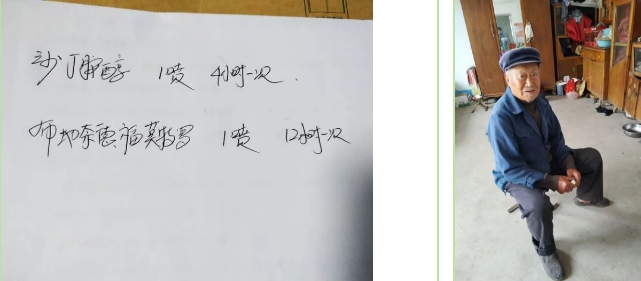 沙丁胺醇 1喷 4小时一次.
布地奈德福莫特罗 1喷 12小时一次